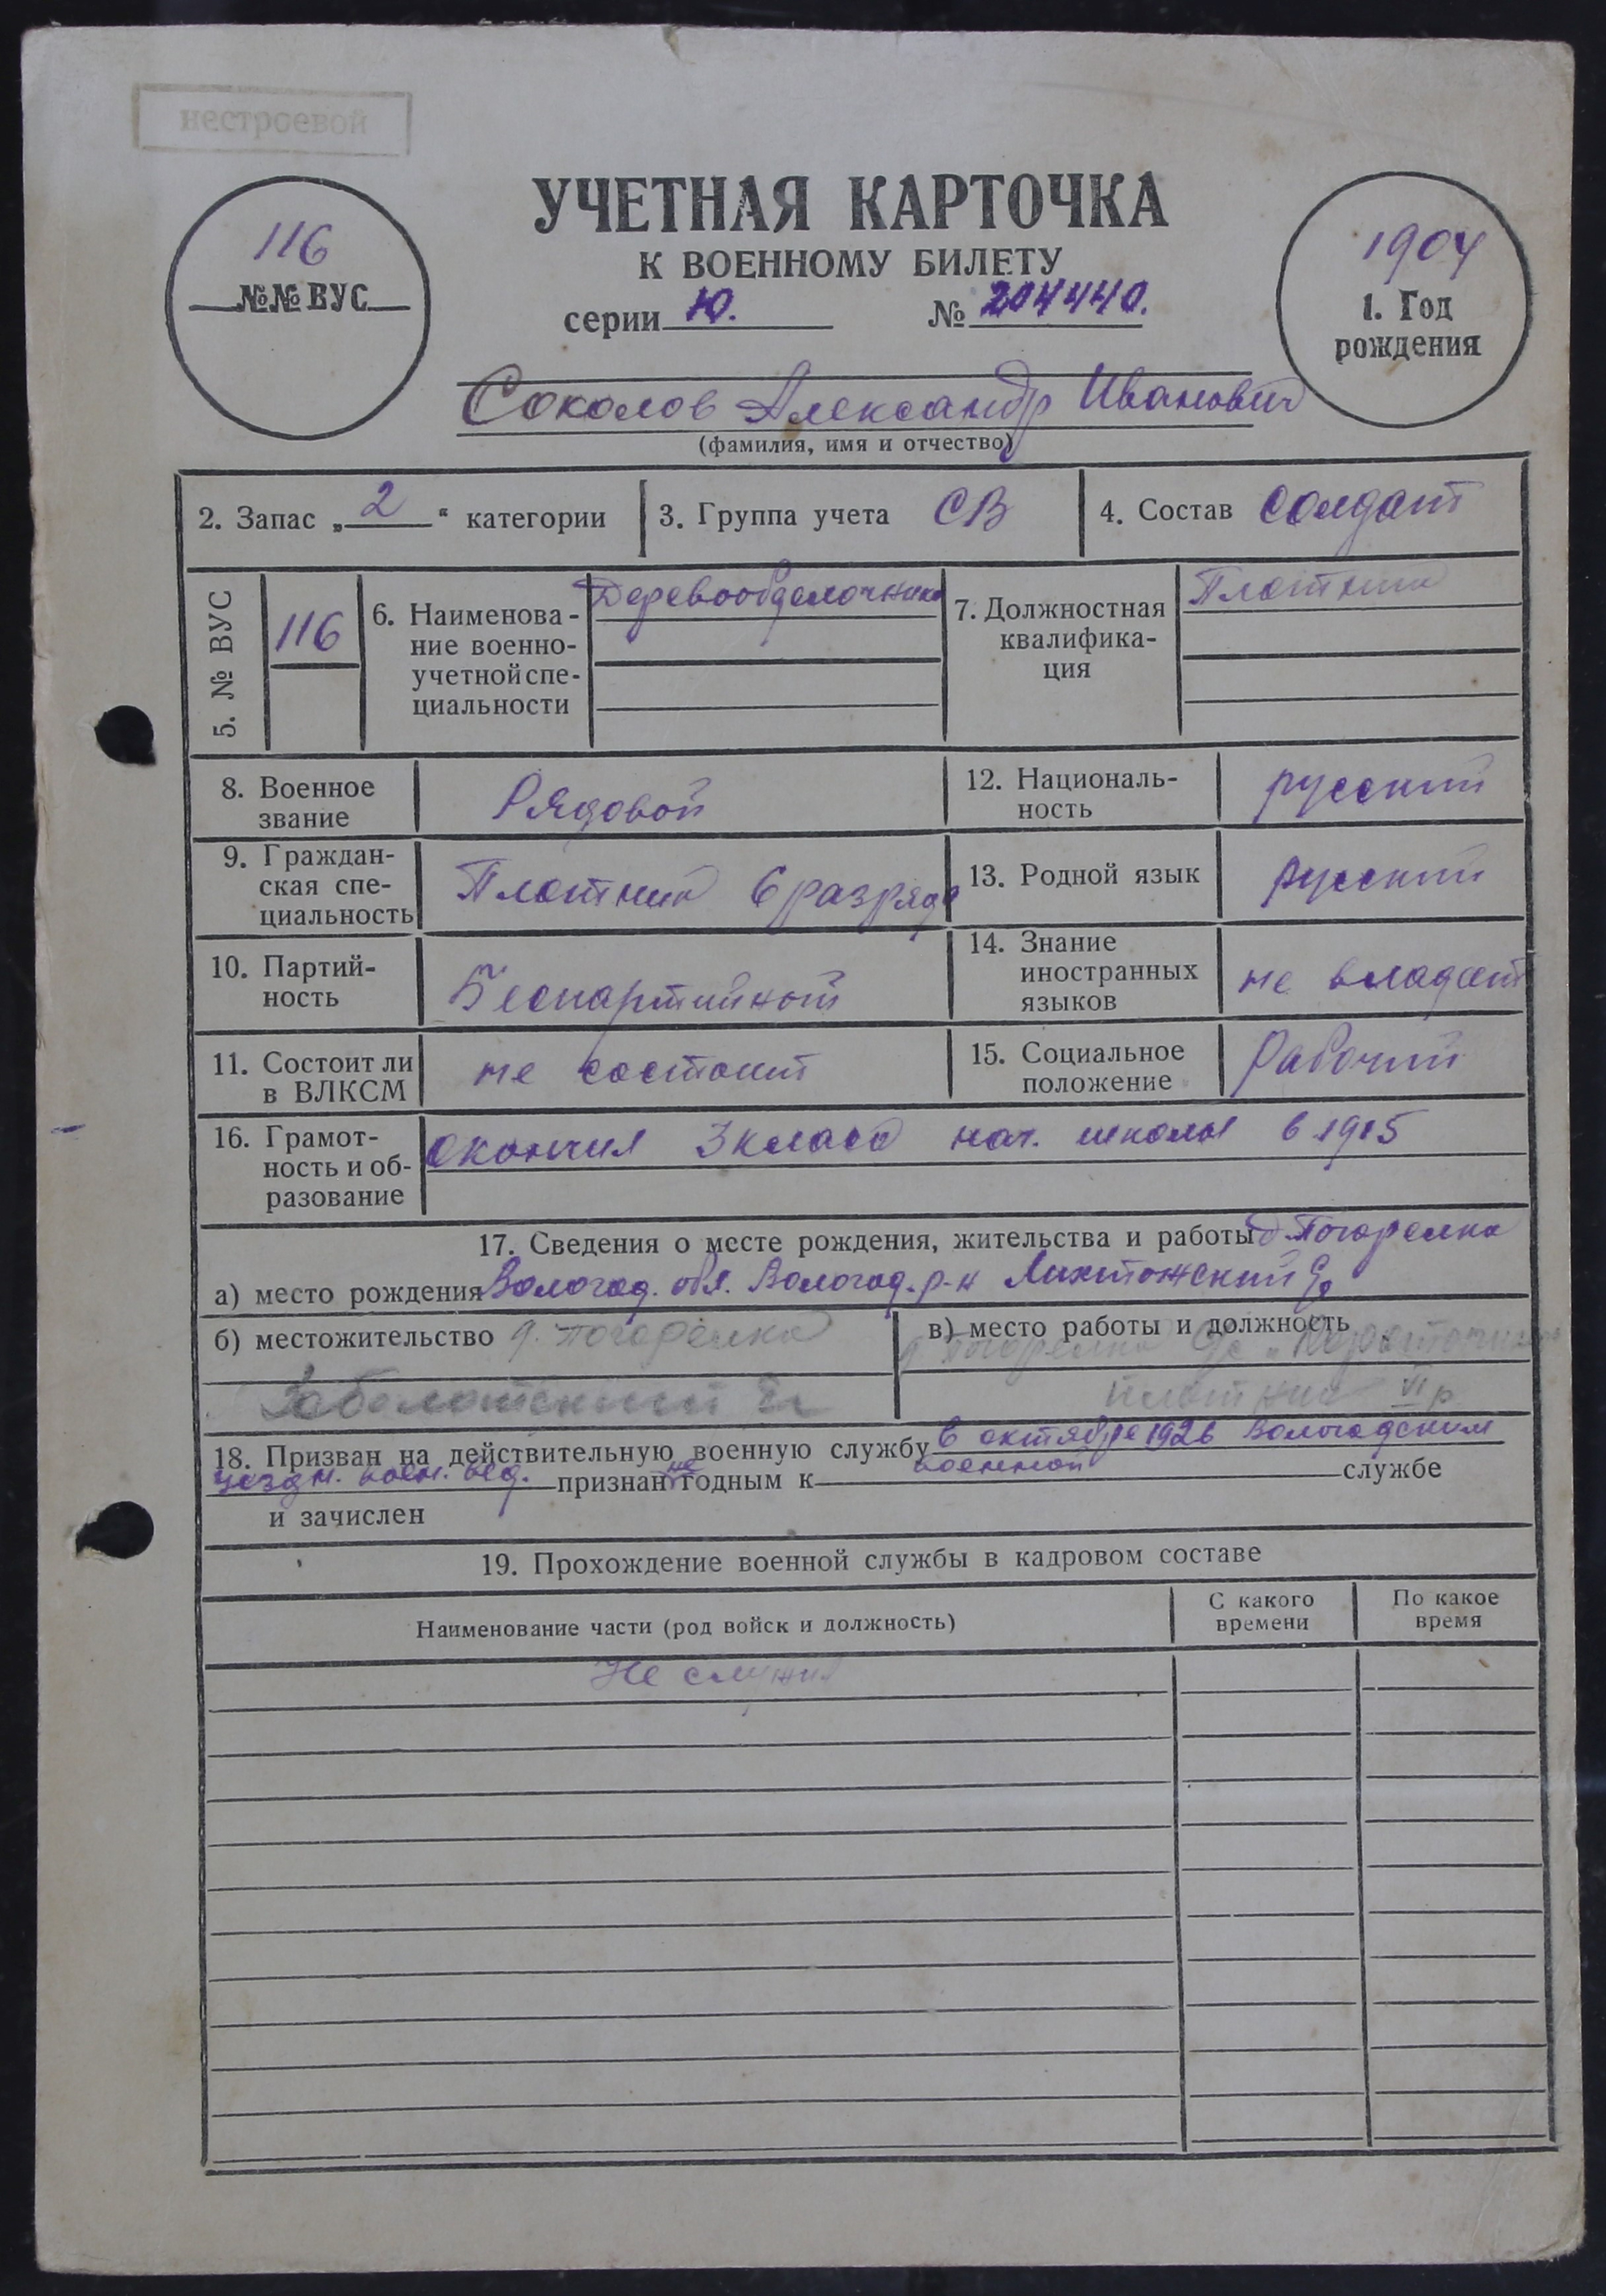 нестроевой
УЧЕТНАЯ КАРТОЧКА
К ВОЕННОМУ БИЛЕТУ
серии Ю. № 204440.
116
№№ ВУС
1904
1. Год
рождения
Соколов Александр Иванович
(фамилия, имя и отчество)
2. Запас „2“ категории
3. Группа учета СВ
4. Состав солдат
5. № ВУС
116
6. Наименова-
ние военно-
учетной спе-
циальности
Деревообделочник
7. Должностная
квалифика-
ция
Плотник
8. Военное
звание
Рядовой
12. Националь-
ность
русский
9. Граждан-
ская спе-
циальность
Плотник 6 разряда
13. Родной язык
русский
10. Партий-
ность
Беспартийный
14. Знание
иностранных
языков
не владеет
11. Состоит ли
в ВЛКСМ
не состоит
15. Социальное
положение
Рабочий
16. Грамот-
ность и об-
разование
окончил 3 класса нач. школы в 1915
17. Сведения о месте рождения, жительства и работы д. Погорелка
а) место рождения Вологод. обл. Вологод. р-н
б) местожительство д. Погорелка
в) место работы и должность
д. Погорелка
плотник VI р
18. Призван на действительную военную службу в октябре 1926 Вологодским
уездн. воен. признан не годным к военной службе
и зачислен
19. Прохождение военной службы в кадровом составе
Наименование части (род войск и должность)
С какого
времени
По какое
время
Не служил